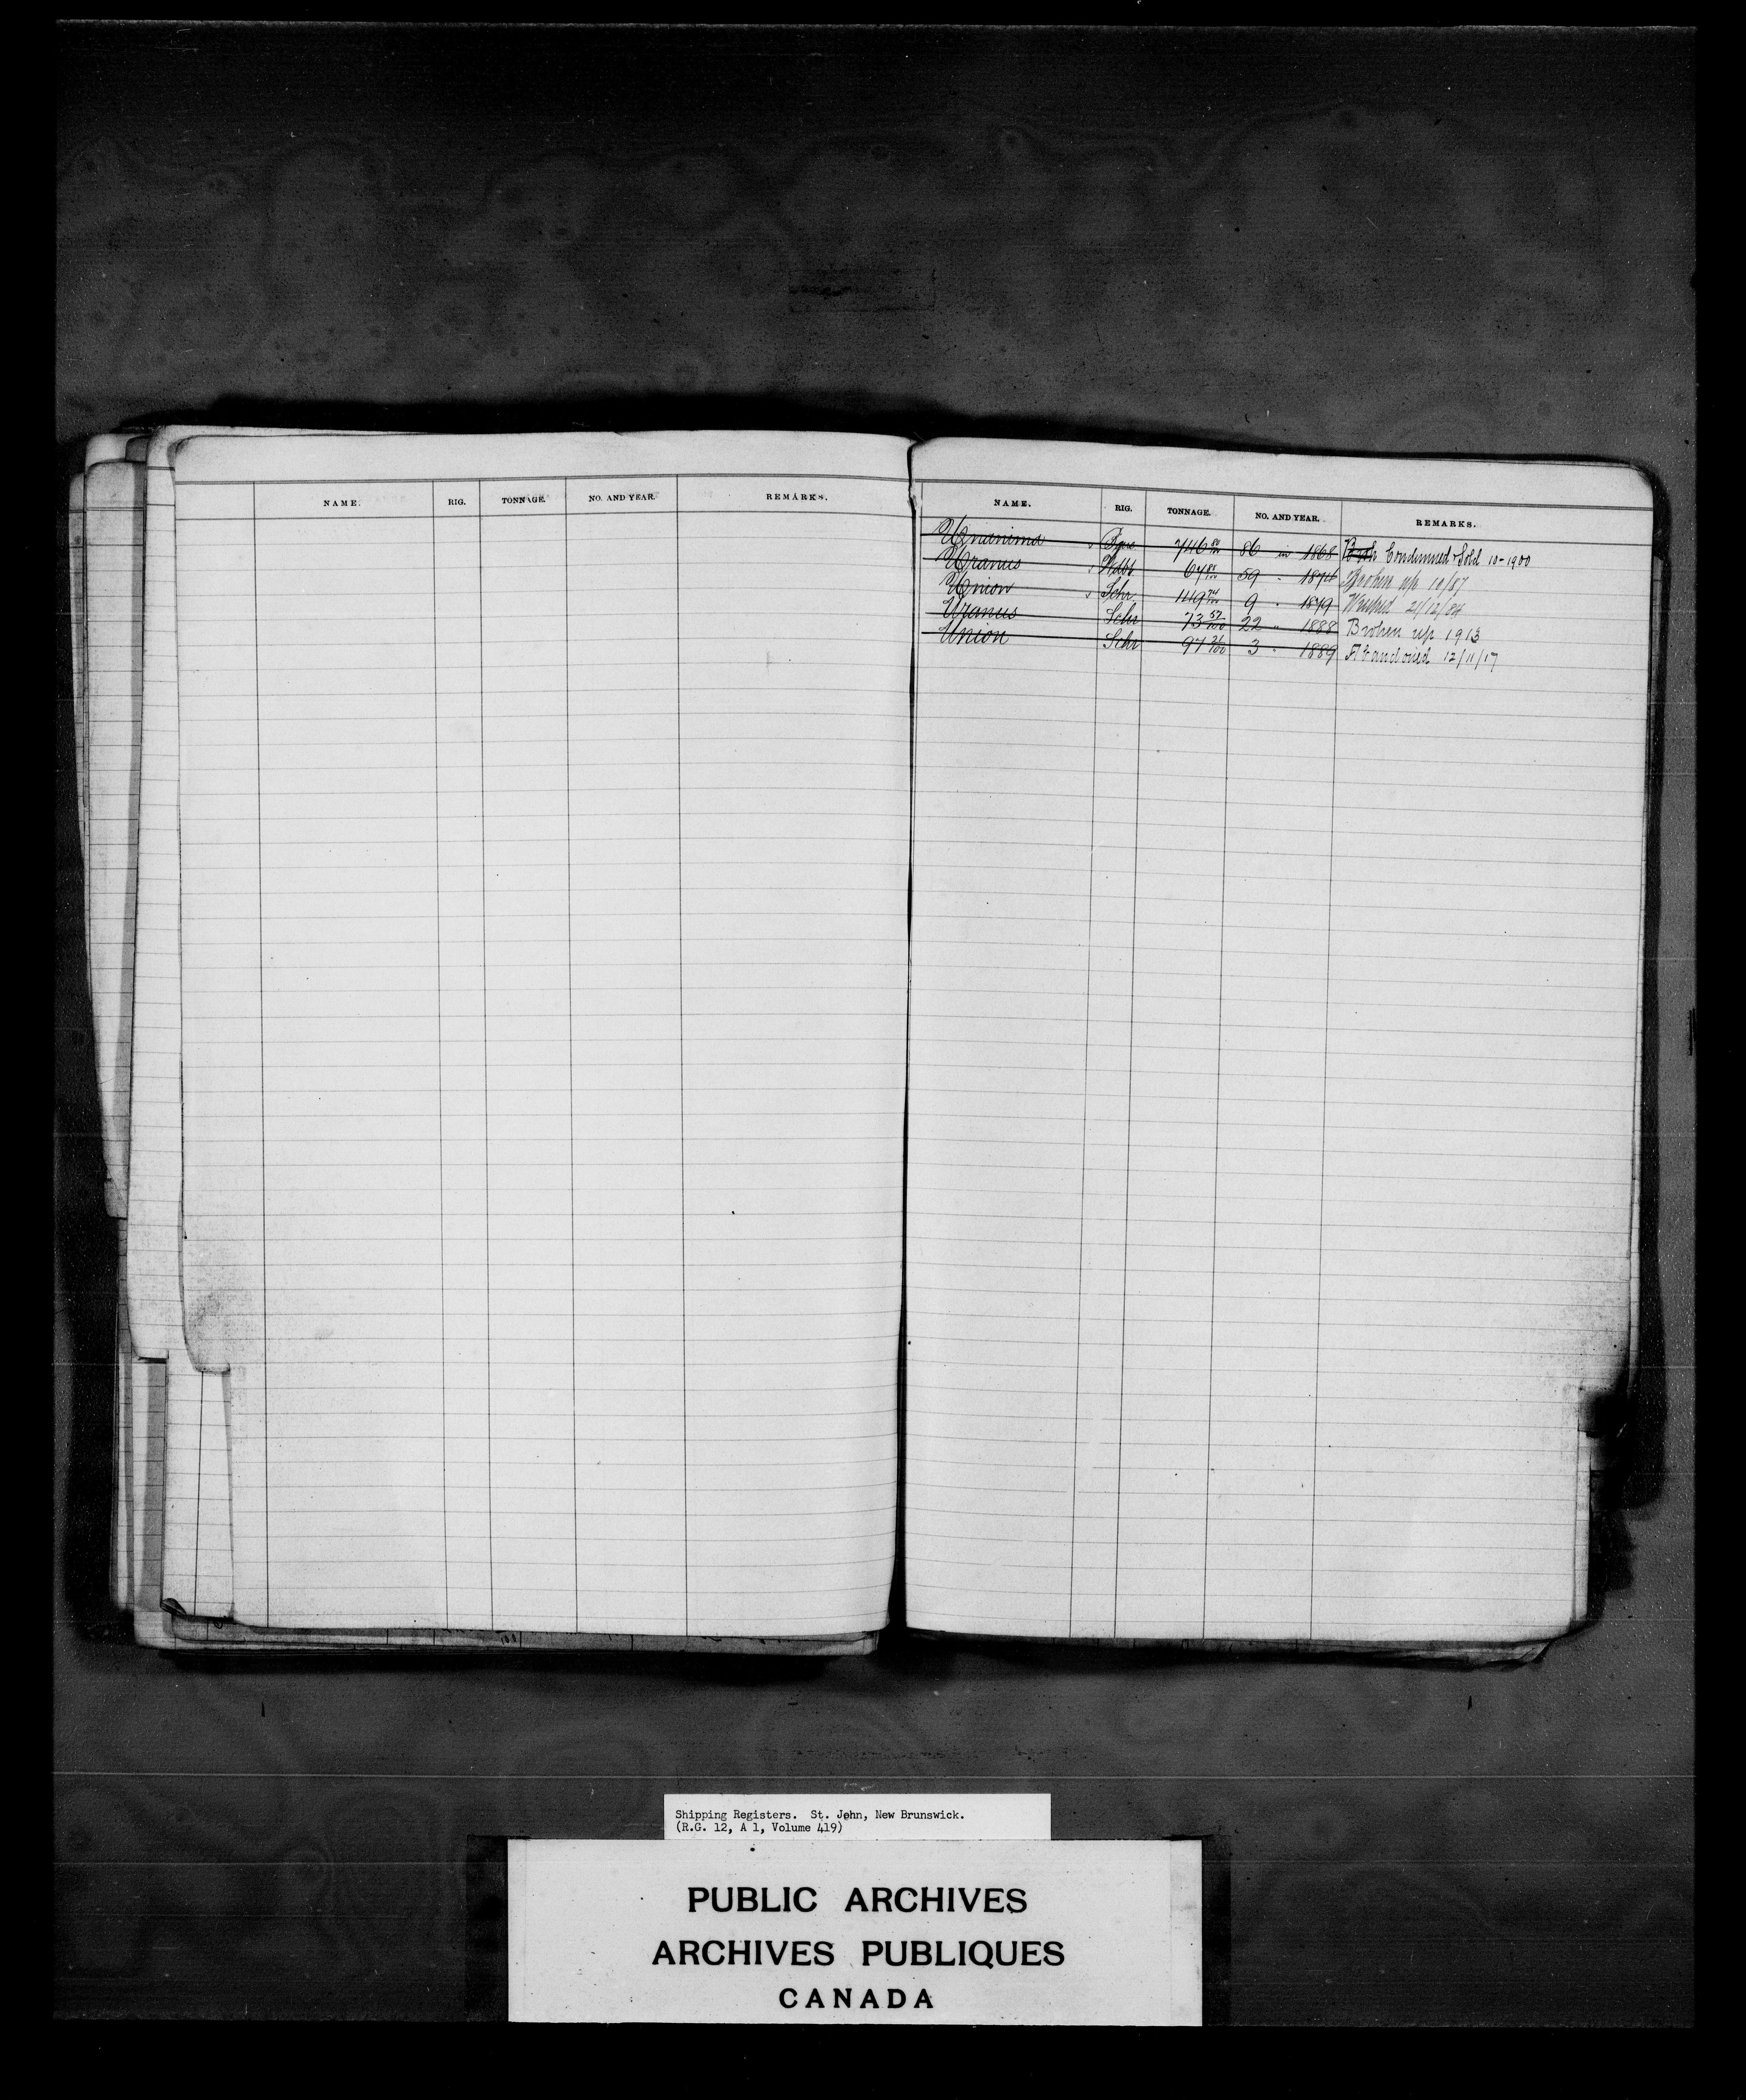 NAME. RIG. TONNAGE. NO. AND YEAR. REMARKS.
NAME. RIG. TONNAGE. NO. AND YEAR. REMARKS.
Unanima Bqne 746 86 in 1868 Condemned & Sold 10-1900
Uranus Wdbt 67 59 " 1874 Broken up 10/87
Union Schr 149 74/100 9 " 1879 Wrecked 21/12/84
Uranus Schr 73 57/100 22 " 1888 Broken up 1913
Union Schr 97 21/100 3 " 1889 Abandoned 12/11/17
Shipping Registers. St. John, New Brunswick.
(R.G. 12, A 1, Volume 419)
PUBLIC ARCHIVES
ARCHIVES PUBLIQUES
CANADA